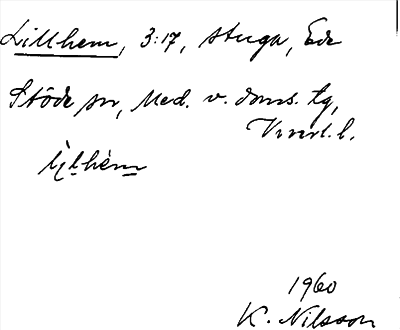 Lillhem, 3:17, stuga, Ede
Stöde sn, Med. v. doms. tg,
Vnrl. l.
1960
K. Nilsson